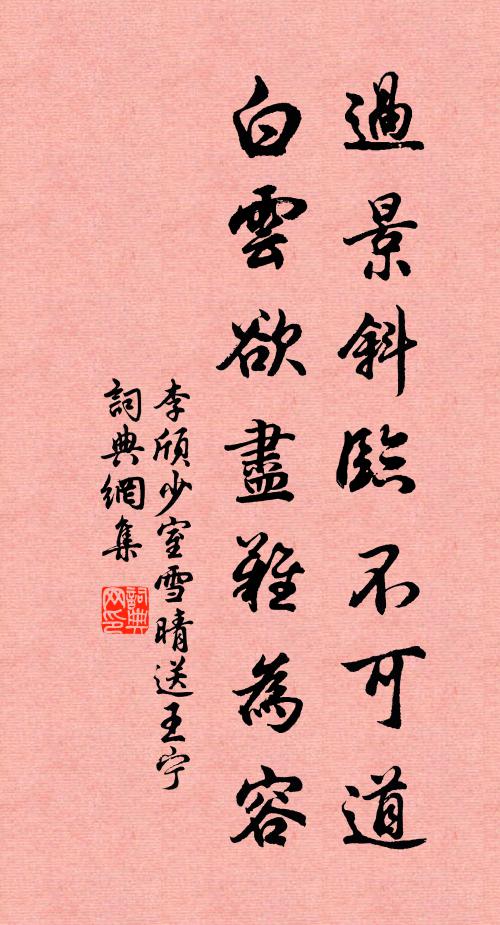 過景斜臨不可道
白雲欲盡難為容
李頎少室雪晴送王宁
詞典網集
詞典网印